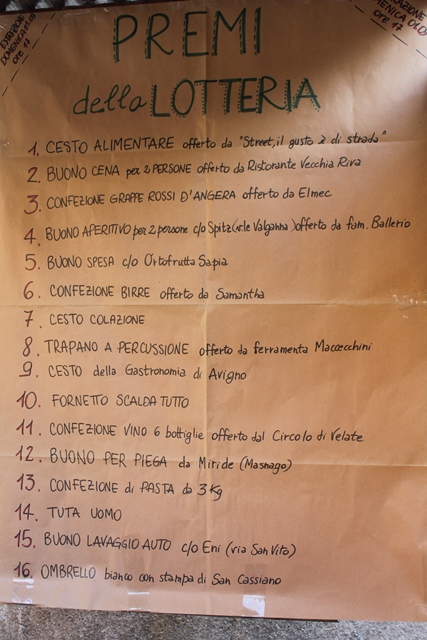 ESTRAZIONE
DOMENICA
ORE 17
PREMI
della LOTTERIA
1. CESTO ALIMENTARE offerto da "Street, il gusto è di strada"
2. BUONO CENA per 2 PERSONE offerto da Ristorante Vecchia Riva
3. CONFEZIONE GRAPPE ROSSI D'ANGERA offerto da Elmec
4. BUONO APERITIVO per 2 persone c/o Spitz (v.le Valganna) offerto da fam. Ballerio
5. BUONO SPESA c/o Ortofrutta Sapia
6. CONFEZIONE BIRRE offerto da Samantha
7. CESTO COLAZIONE
8. TRAPANO A PERCUSSIONE offerto da ferramenta Maccecchini
9. CESTO della Gastronomia di Avigno
10. FORNETTO SCALDATUTTO
11. CONFEZIONE VINO 6 bottiglie offerto dal Circolo di Velate
12. BUONO PER PIEGA da Miride (Masnago)
13. CONFEZIONE di PASTA da 3 Kg
14. TUTA UOMO
15. BUONO LAVAGGIO AUTO c/o Eni (via San Vito)
16. OMBRELLO bianco con stampa di San Cassiano